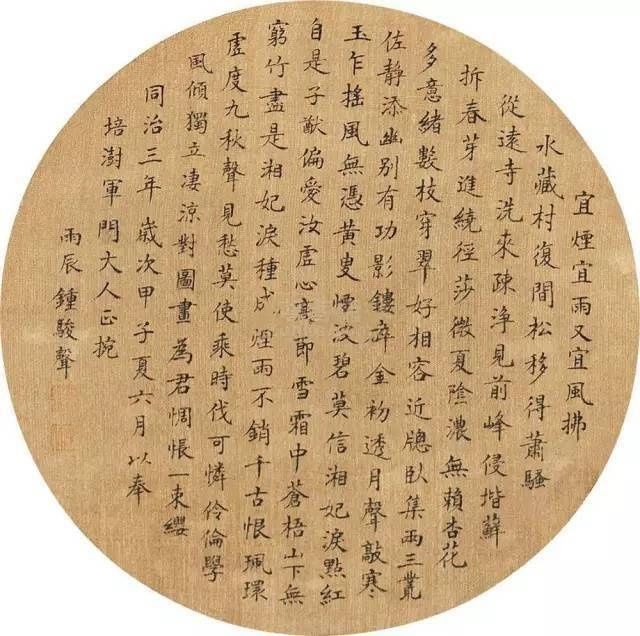 宜煙宜雨又宜風拂
水藏村復間松移得蕭騷
從遠寺洗來疎淨見前峰侵堦蘚
拆春芽迸繞徑莎微夏陰濃無賴杏花
多意緒數枝穿翠好相容近牕臥集雨三叢
佐靜添幽別有功影鏤碎金初透月聲敲寒
玉乍搖風無憑黃叟煙波碧莫信湘妃淚點紅
自是子猷偏愛汝虛心高節雪霜中蒼梧山下無
窮竹盡是湘妃淚種成煙雨不銷千古恨珮環
虛度九秋聲見愁莫使乘時伐可憐伶倫學
風傾獨立淒涼對圖畫為君惆悵一束纓
同治三年歲次甲子夏六月以奉
培澍軍門大人正捥
雨辰鍾駿聲